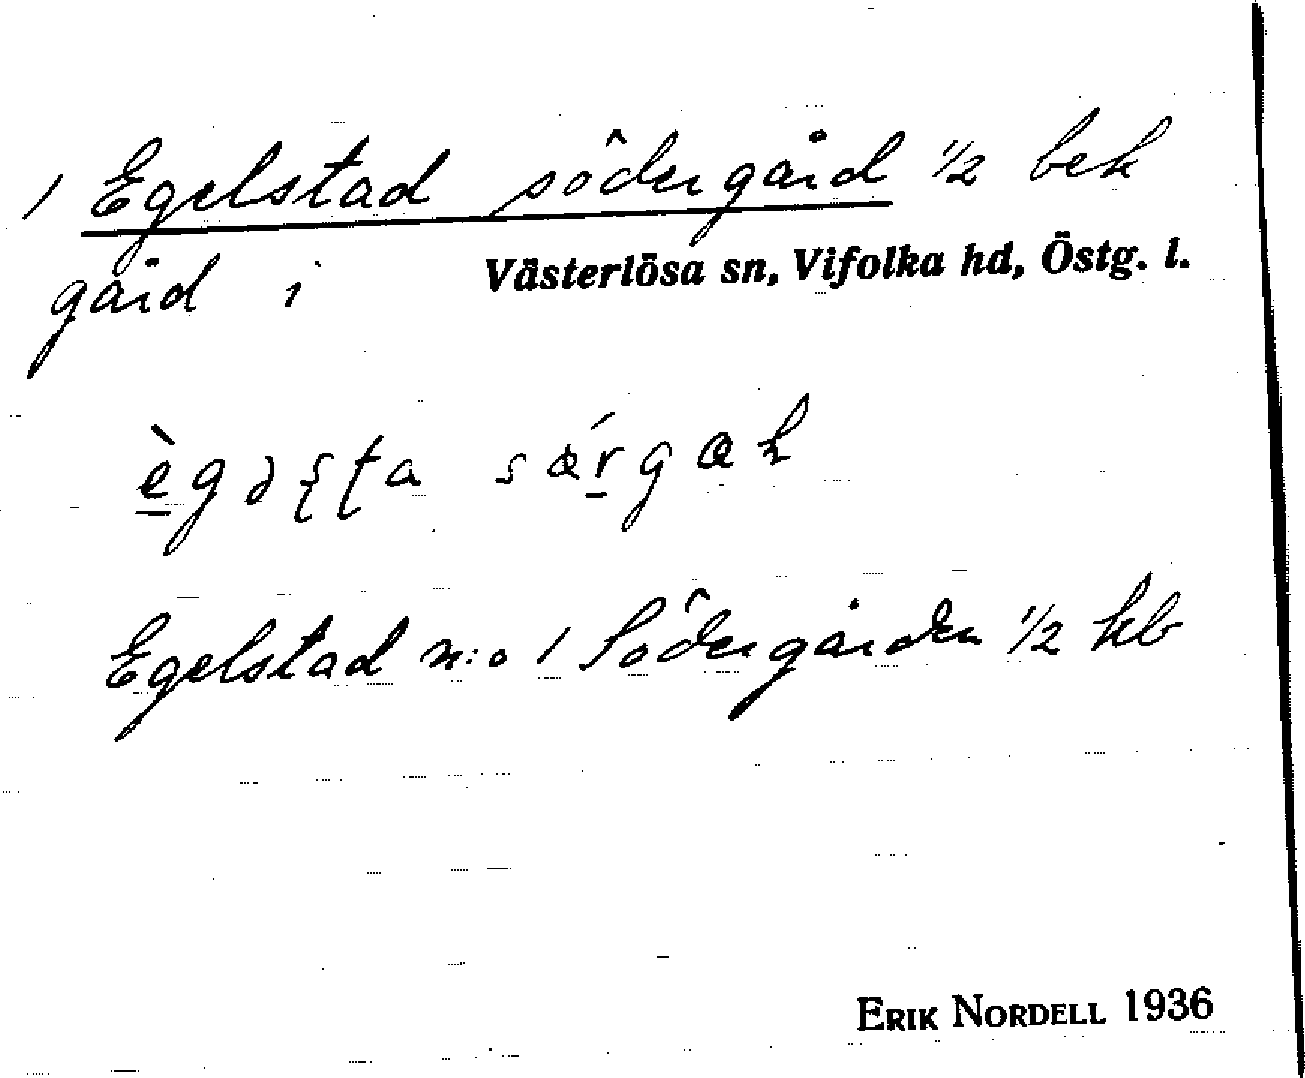 1 Egelstad södergård ½ bek
gård i Västerlösa sn, Vifolka hd, Östg. l.
Egelstad n:o 1 Södergården ½ hb
ERIK NORDELL 1936